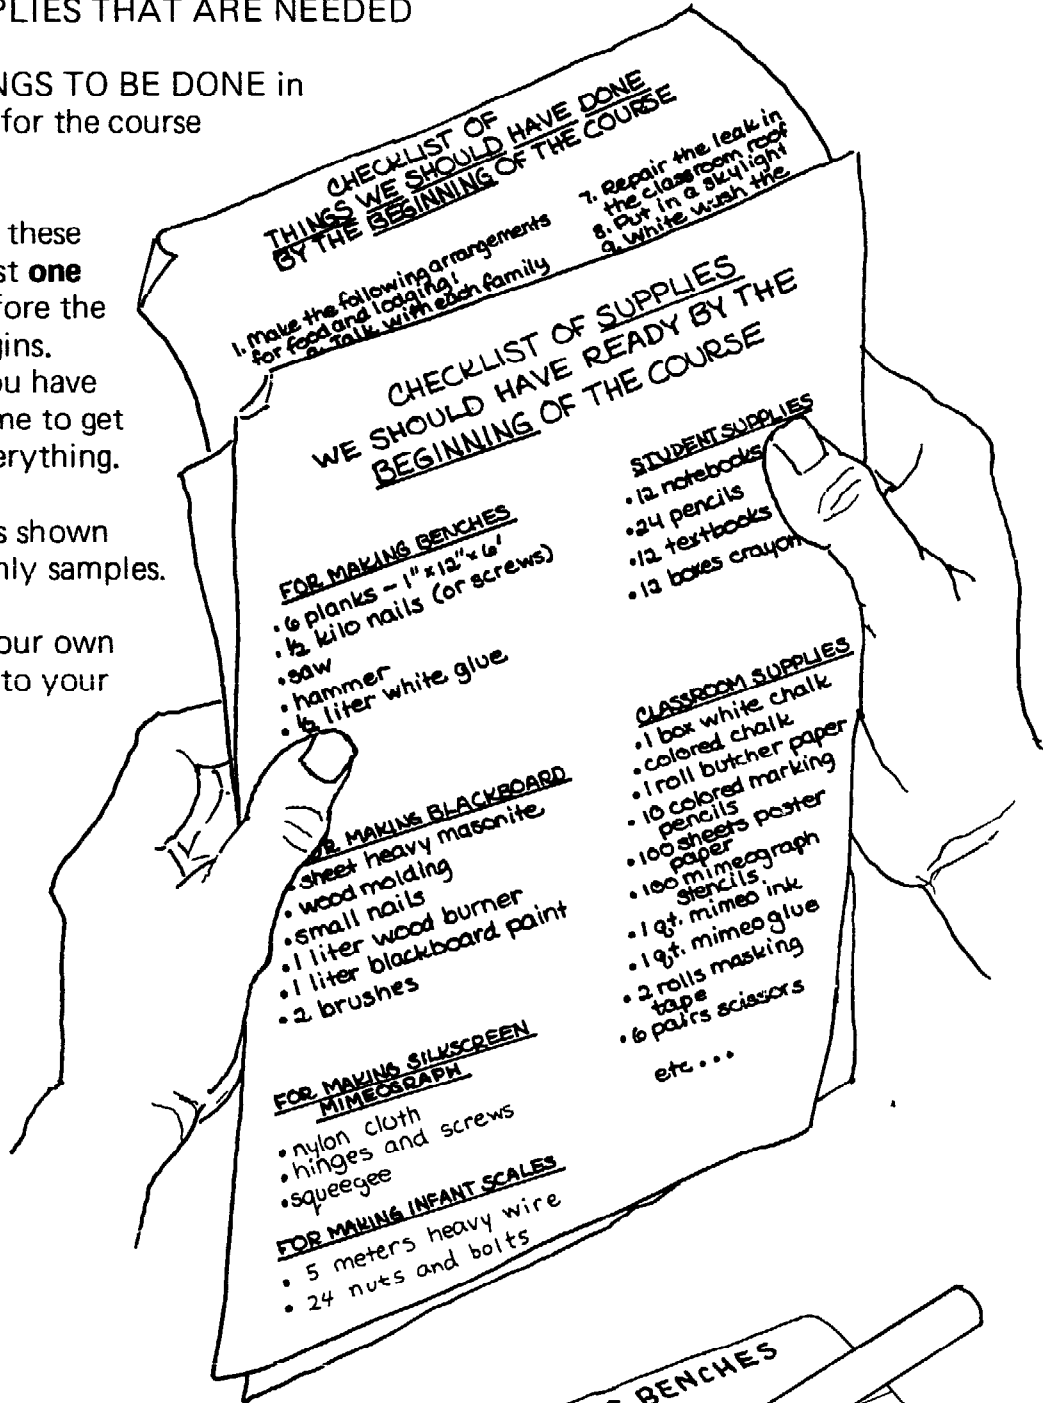 PLIES THAT ARE NEEDED
NGS TO BE DONE in
for the course
these
st one
fore the
gins.
ou have
me to get
erything.
s shown
nly samples.
our own
to your
CHECKLIST OF
THINGS WE SHOULD HAVE DONE
BY THE BEGINNING OF THE COURSE
1. Make the following arrangements
for food and lodging:
a. Talk with each family
7. Repair the leak in
the classroom roof
8. Put in a skylight
9. White wash the
CHECKLIST OF SUPPLIES
WE SHOULD HAVE READY BY THE
BEGINNING OF THE COURSE
FOR MAKING BENCHES
• 6 planks – 1" x 12" x 6'
• ½ kilo nails (or screws)
• saw
• hammer
• ½ liter white glue
OR MAKING BLACKBOARD
• sheet heavy masonite
• wood molding
• small nails
• 1 liter wood burner
• 1 liter blackboard paint
• 2 brushes
FOR MAKING SILKSCREEN
MIMEOGRAPH
• nylon cloth
• hinges and screws
• squeegee
FOR MAKING INFANT SCALES
• 5 meters heavy wire
• 24 nuts and bolts
STUDENT SUPPLIES
• 12 notebooks
• 24 pencils
• 12 textbooks
• 12 boxes crayon
CLASSROOM SUPPLIES
• 1 box white chalk
• colored chalk
• 1 roll butcher paper
• 10 colored marking
pencils
• 100 sheets poster
paper
• 100 mimeograph
stencils
• 1 qt. mimeo ink
• 1 qt. mimeo glue
• 2 rolls masking
tape
• 6 pairs scissors
etc...
BENCHES